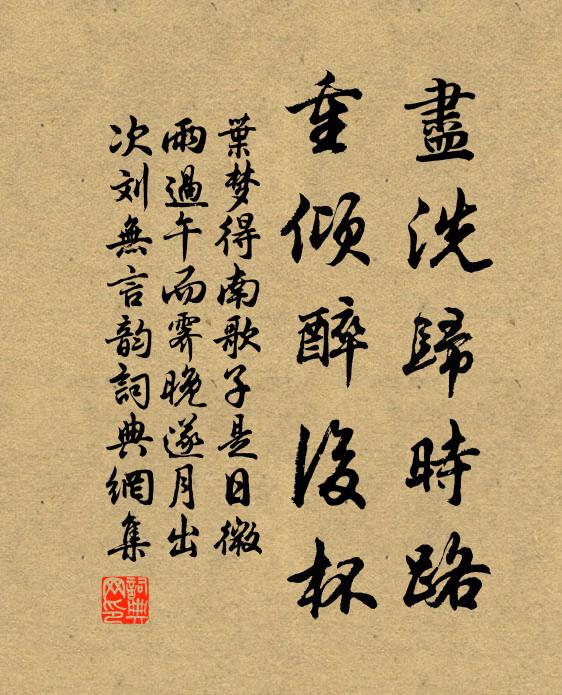 盡洗歸時路
重傾醉後杯
葉梦得南歌子是日微
雨過午而霁晚遂月出
次刘無言韵詞典網集
詞典网印